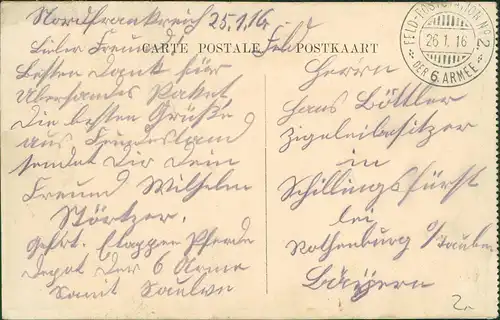 Nordfrankreich 25.1.16
Lieber Freund
CARTE POSTALE
Feld POSTKAART
FELD-POSTSTATION Nr. 2
26.1.16
DER 6. ARMEE
Besten Dank für
übersandtes Paket,
Die besten Grüße
aus Feindesland
sendet Dir Dein
Freund Wilhelm
Störtzer.
Gefrt. Etappen Pferde
Depot der 6 Arme
Herrn
Hans Böttler
Zigeleibesitzer
in
Schillingsfürst
bei
Rothenburg o/Tauber
Bayern